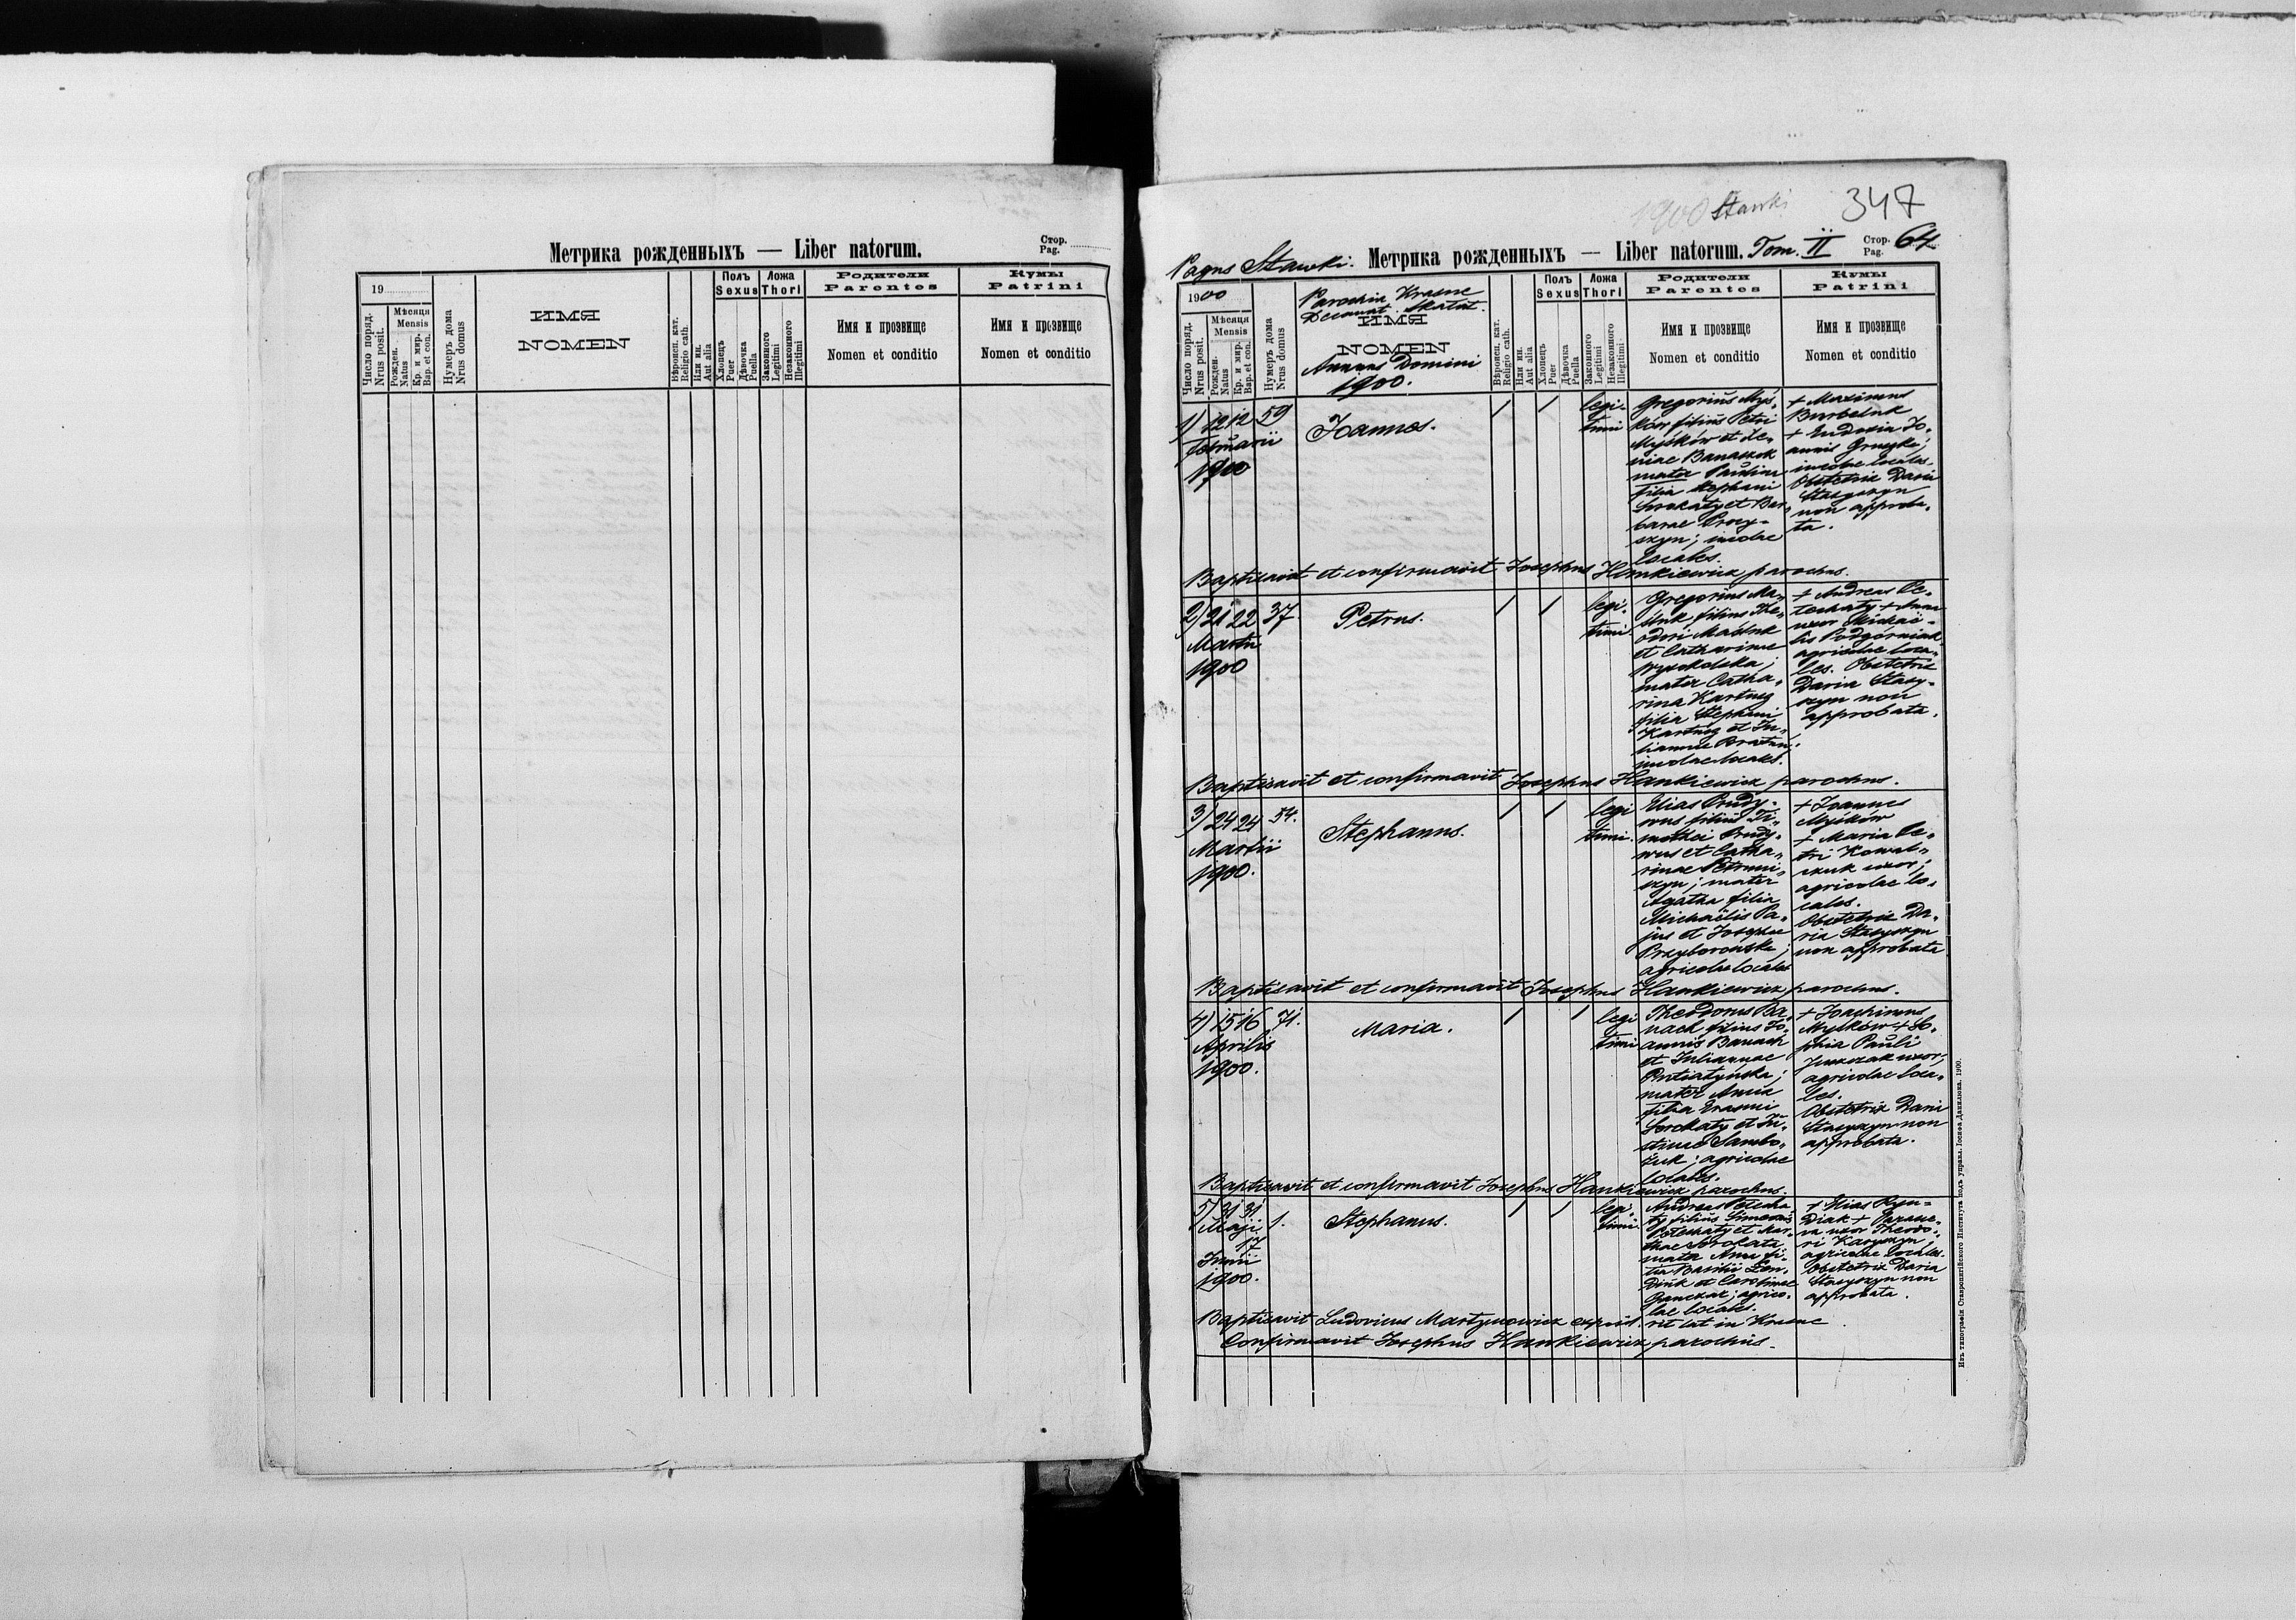 Метрика рожденныхъ — Liber natorum.
Стор.
Pag.
19
Число поряд.
Nrus posit.
Мѣсяця
Mensis
Рожден.
Natus
Кр. и мир.
Bap. et con.
Нумеръ дома
Nrus domus
ИМЯ
NOMEN
Вѣроисп. кат.
Religio cath.
Или ин.
Aut alia
Полъ
Sexus
Хлопецъ
Puer
Дѣвочка
Puella
Ложа
Thori
Законного
Legitimi
Незаконного
Illegitimi
Родители
Parentes
Имя и прозвище
Nomen et conditio
Кумы
Patrini
Имя и прозвище
Nomen et conditio
1900 Stawki
347
Pagus Stawki.
Метрика рожденныхъ — Liber natorum. Tom. II
Стор.
Pag.
64
1900
Число поряд.
Nrus posit.
Мѣсяця
Mensis
Рожден.
Natus
Кр. и мир.
Bap. et con.
Нумеръ дома
Nrus domus
Parochia Krasne
Decanat. Skalat.
ИМЯ
NOMEN
Annus Domini
1900.
Вѣроисп. кат.
Religio cath.
Или ин.
Aut alia
Полъ
Sexus
Хлопецъ
Puer
Дѣвочка
Puella
Ложа
Thori
Законного
Legitimi
Незаконного
Illegitimi
Родители
Parentes
Имя и прозвище
Nomen et conditio
Кумы
Patrini
Имя и прозвище
Nomen et conditio
1) 12 12 59
Februarii
1900
Joannes.
legi-
timi
Gregorius Myś-
ków filius Petri
Myśków et Xe-
niae Banaszok
mater Paulina
filia Stephani
Sorokaty et Bar-
barae Procy-
szyn; incolae
locales.
+ Maximus
Burbeluk
+ Eudoxia Jo-
annis
incolae locales.
Obstetrix Daria
Stasyszyn
non approba-
ta.
Baptisavit et confirmavit Josephus Hankiewicz parochus.
2) 21 22 37
Martii
1900
Petrus.
legi-
timi.
Gregorius Ma-
śluk filius The-
odori Maśluk
et Catharinae
mater Catha-
rina
filia Stephani
et Ju-
liannae
incolae locales.
+ Andreas Pe-
techaty + Anna
uxor Michaë-
lis Podgórniak
agricolae loca-
les. Obstetrix
Daria Stasy-
szyn non
approbata.
Baptisavit et confirmavit Josephus Hankiewicz parochus.
3) 24 24 54.
Martii
1900.
Stephanus.
legi
timi.
Elias Prudy-
wus filius Ti-
mothei Prudy-
wus et Catha-
rinae Petruni-
szyn; mater
Agatha filia
Michaëlis Pa-
jus et Josephae
Przyborowska;
agricolae locales
+ Joannes
Myśków
+ Maria Pe-
tri Kowal-
czuk uxor;
agricolae lo-
cales.
Obstetrix Da-
ria Stasyszyn
non approbata
Baptisavit et confirmavit Josephus Hankiewicz parochus.
4) 15 16 71.
Aprilis
1900.
Maria.
legi
timi
Theodorus Ba-
nach filius Jo-
annis Banach
et Juliannae
Putiatyńska;
mater Anna
filia Erasmi
Sorokaty et Ju-
stinae Sambo-
żuk; agricolae
locales.
+ Joachimus
Myśków + So-
phia Pauli
Juszczak uxor;
agricolae loca-
les.
Obstetrix Daria
Stasyszyn non
approbata.
Baptisavit et confirmavit Josephus Hankiewicz parochus.
5) 31 31 1.
Maji
17
Junii
1900.
Stephanus.
legi-
timi
Andreas Petecha-
ty filius Simeonis
Petechaty et Mar-
thae Sorokata
mater Anna fi-
lia Basilii
et Carolinae
agrico-
lae locales.
+ Elias Ryn-
diak + Parasce-
va uxor Theodo-
ri
agricolae locales.
Obstetrix Daria
Stasyszyn non
approbata.
Baptisavit Ludovicus Martynowicz exposit. rit lat in Krasne
Confirmavit Josephus Hankiewicz parochus.
Изъ типографіи Ставропигійского Института подъ управл. Іосифа Данилюка. 1900.